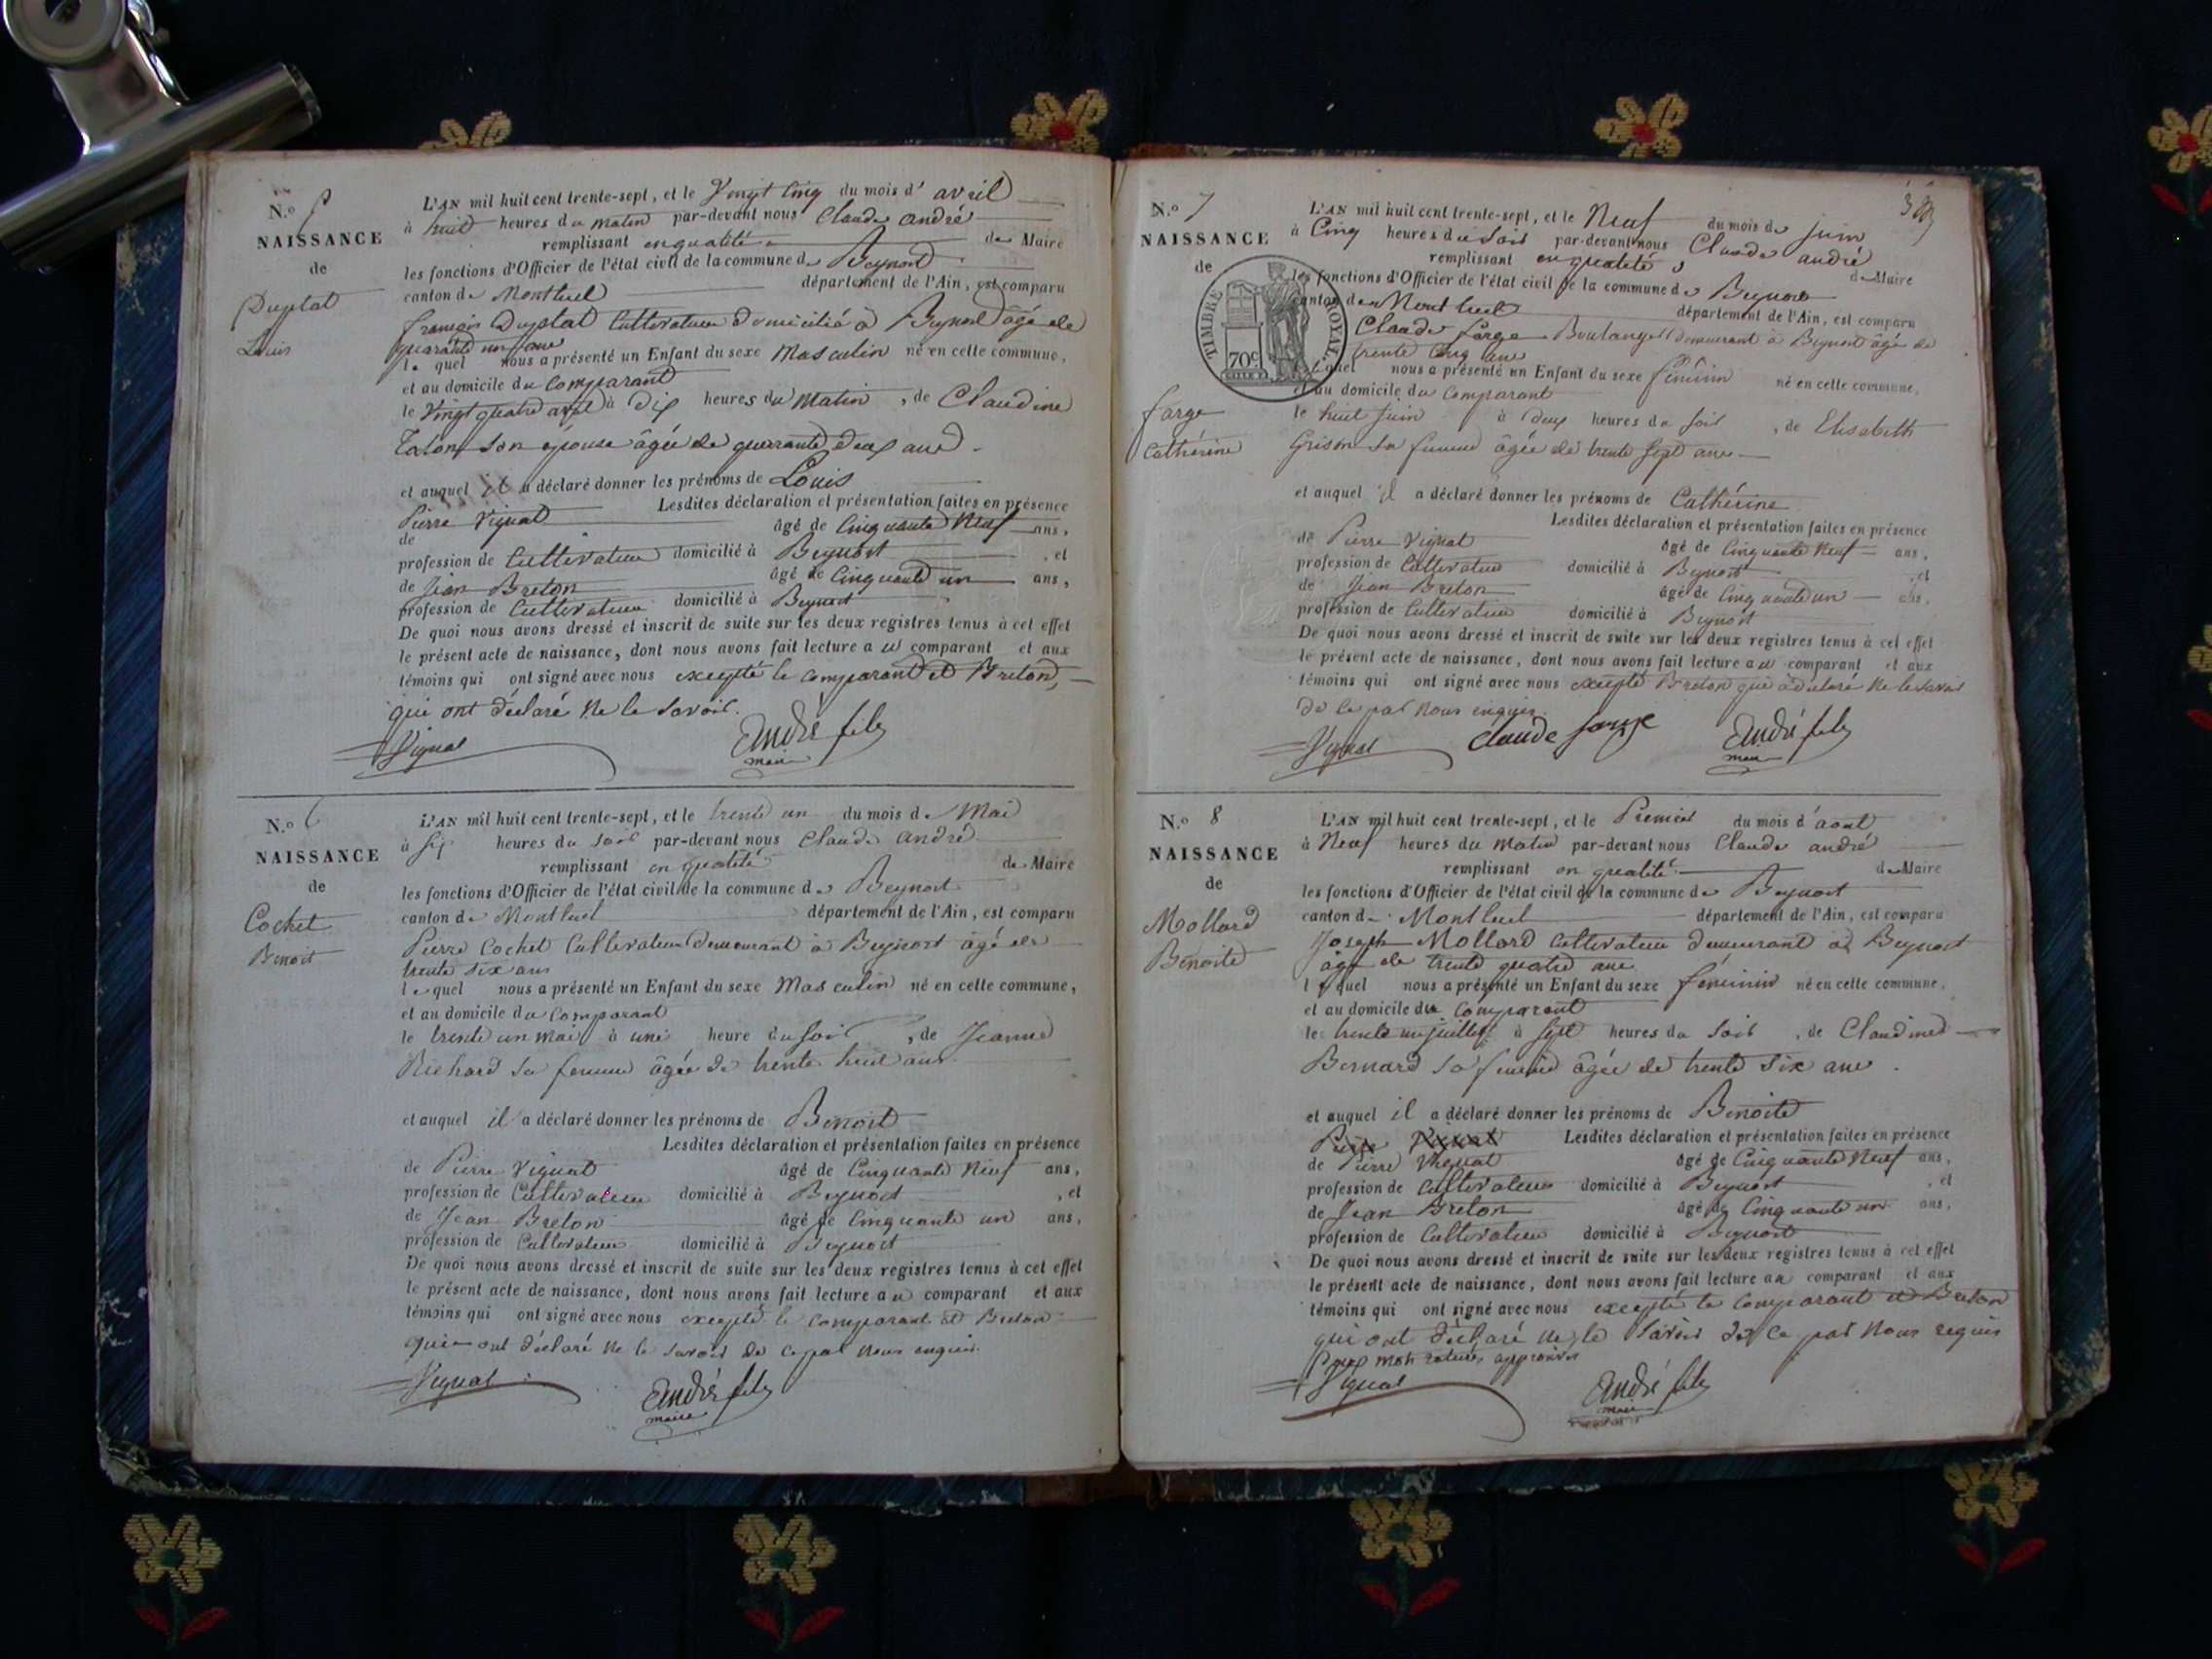 N.o 5
NAISSANCE
de
Duplat
Louis
L'AN mil huit cent trente-sept, et le Vingt Cinq du mois d' avril
à huit heures du matin par-devant nous Claude andré
remplissant en qualité de Maire
les fonctions d'Officier de l'état civil de la commune de Beynost
canton de Montluel département de l'Ain, est comparu
françois Duplat Cultivateur domicilié à Beynost âgé de
quarante un ans
le quel nous a présenté un Enfant du sexe Masculin né en cette commune,
et au domicile du comparant
le Vingt quatre avril à dix heures du matin, de Claudine
Talon son épouse âgée de quarante deux ans
et auquel il a déclaré donner les prénoms de Louis
Lesdites déclaration et présentation faites en présence
de Pierre Vignat âgé de Cinquante Neuf ans,
profession de Cultivateur domicilié à Beynost, et
de Jean Breton âgé de Cinquante un ans,
profession de Cultivateur domicilié à Beynost
De quoi nous avons dressé et inscrit de suite sur les deux registres tenus à cet effet
le présent acte de naissance, dont nous avons fait lecture au comparant et aux
témoins qui ont signé avec nous excepté le comparant et Breton,
qui ont déclaré ne le savoir.
Vignat André fils
maire
N.o 6
NAISSANCE
de
Cochet
Benoit
L'AN mil huit cent trente-sept, et le trente un du mois de Mai
à six heures du soir par-devant nous Claude andré
remplissant en qualité de Maire
les fonctions d'Officier de l'état civil de la commune de Beynost
canton de Montluel département de l'Ain, est comparu
Pierre Cochet Cultivateur demeurant à Beynost âgé de
trente six ans
le quel nous a présenté un Enfant du sexe Masculin né en cette commune,
et au domicile du comparant
le trente un mai à une heure du soir, de Jeanne
Richard sa femme âgée de trente huit ans
et auquel il a déclaré donner les prénoms de Benoit
Lesdites déclaration et présentation faites en présence
de Pierre Vignat âgé de Cinquante Neuf ans,
profession de Cultivateur domicilié à Beynost, et
de Jean Breton âgé de Cinquante un ans,
profession de Cultivateur domicilié à Beynost
De quoi nous avons dressé et inscrit de suite sur les deux registres tenus à cet effet
le présent acte de naissance, dont nous avons fait lecture au comparant et aux
témoins qui ont signé avec nous excepté le comparant et Breton
qui ont déclaré ne le savoir de ce par nous enquis.
Vignat André fils
maire
N.o 7
NAISSANCE
de
TIMBRE ROYAL
70c
farge
Cathérine
L'AN mil huit cent trente-sept, et le Neuf du mois de juin
à Cinq heures du soir par-devant nous Claude andré
remplissant en qualité de Maire
les fonctions d'Officier de l'état civil de la commune de Beynost
canton de Montluel département de l'Ain, est comparu
Claude farge Boulanger demeurant à Beynost âgé de
trente cinq ans
lequel nous a présenté un Enfant du sexe féminin né en cette commune,
et au domicile du comparant
le huit juin à deux heures du soir, de Elisabeth
Grison sa femme âgée de trente sept ans
et auquel il a déclaré donner les prénoms de Cathérine
Lesdites déclaration et présentation faites en présence
de Pierre Vignat âgé de Cinquante Neuf ans,
profession de Cultivateur domicilié à Beynost, et
de Jean Breton âgé de Cinquante un ans,
profession de Cultivateur domicilié à Beynost
De quoi nous avons dressé et inscrit de suite sur les deux registres tenus à cet effet
le présent acte de naissance, dont nous avons fait lecture au comparant et aux
témoins qui ont signé avec nous excepté Breton qui a déclaré ne le savoir
de ce par nous enquis.
Vignat claude farge André fils
maire
N.o 8
NAISSANCE
de
Mollard
Benoite
L'AN mil huit cent trente-sept, et le Premier du mois d'aout
à Neuf heures du matin par-devant nous Claude andré
remplissant en qualité de Maire
les fonctions d'Officier de l'état civil de la commune de Beynost
canton de Montluel département de l'Ain, est comparu
Joseph Mollard Cultivateur demeurant à Beynost
âgé de trente quatre ans
lequel nous a présenté un Enfant du sexe féminin né en cette commune,
et au domicile du comparant
le trente un juillet à sept heures du soir, de Claudine
Bernard sa femme âgée de trente six ans.
et auquel il a déclaré donner les prénoms de Benoite
Pierre Vignat Lesdites déclaration et présentation faites en présence
de Pierre Vignat âgé de Cinquante Neuf ans,
profession de Cultivateur domicilié à Beynost, et
de Jean Breton âgé de Cinquante un ans,
profession de Cultivateur domicilié à Beynost
De quoi nous avons dressé et inscrit de suite sur les deux registres tenus à cet effet
le présent acte de naissance, dont nous avons fait lecture au comparant et aux
témoins qui ont signé avec nous excepté le comparant et Breton
qui ont déclaré ne le savoir de ce par nous requis
mots raturés approuvés
Vignat André fils
maire